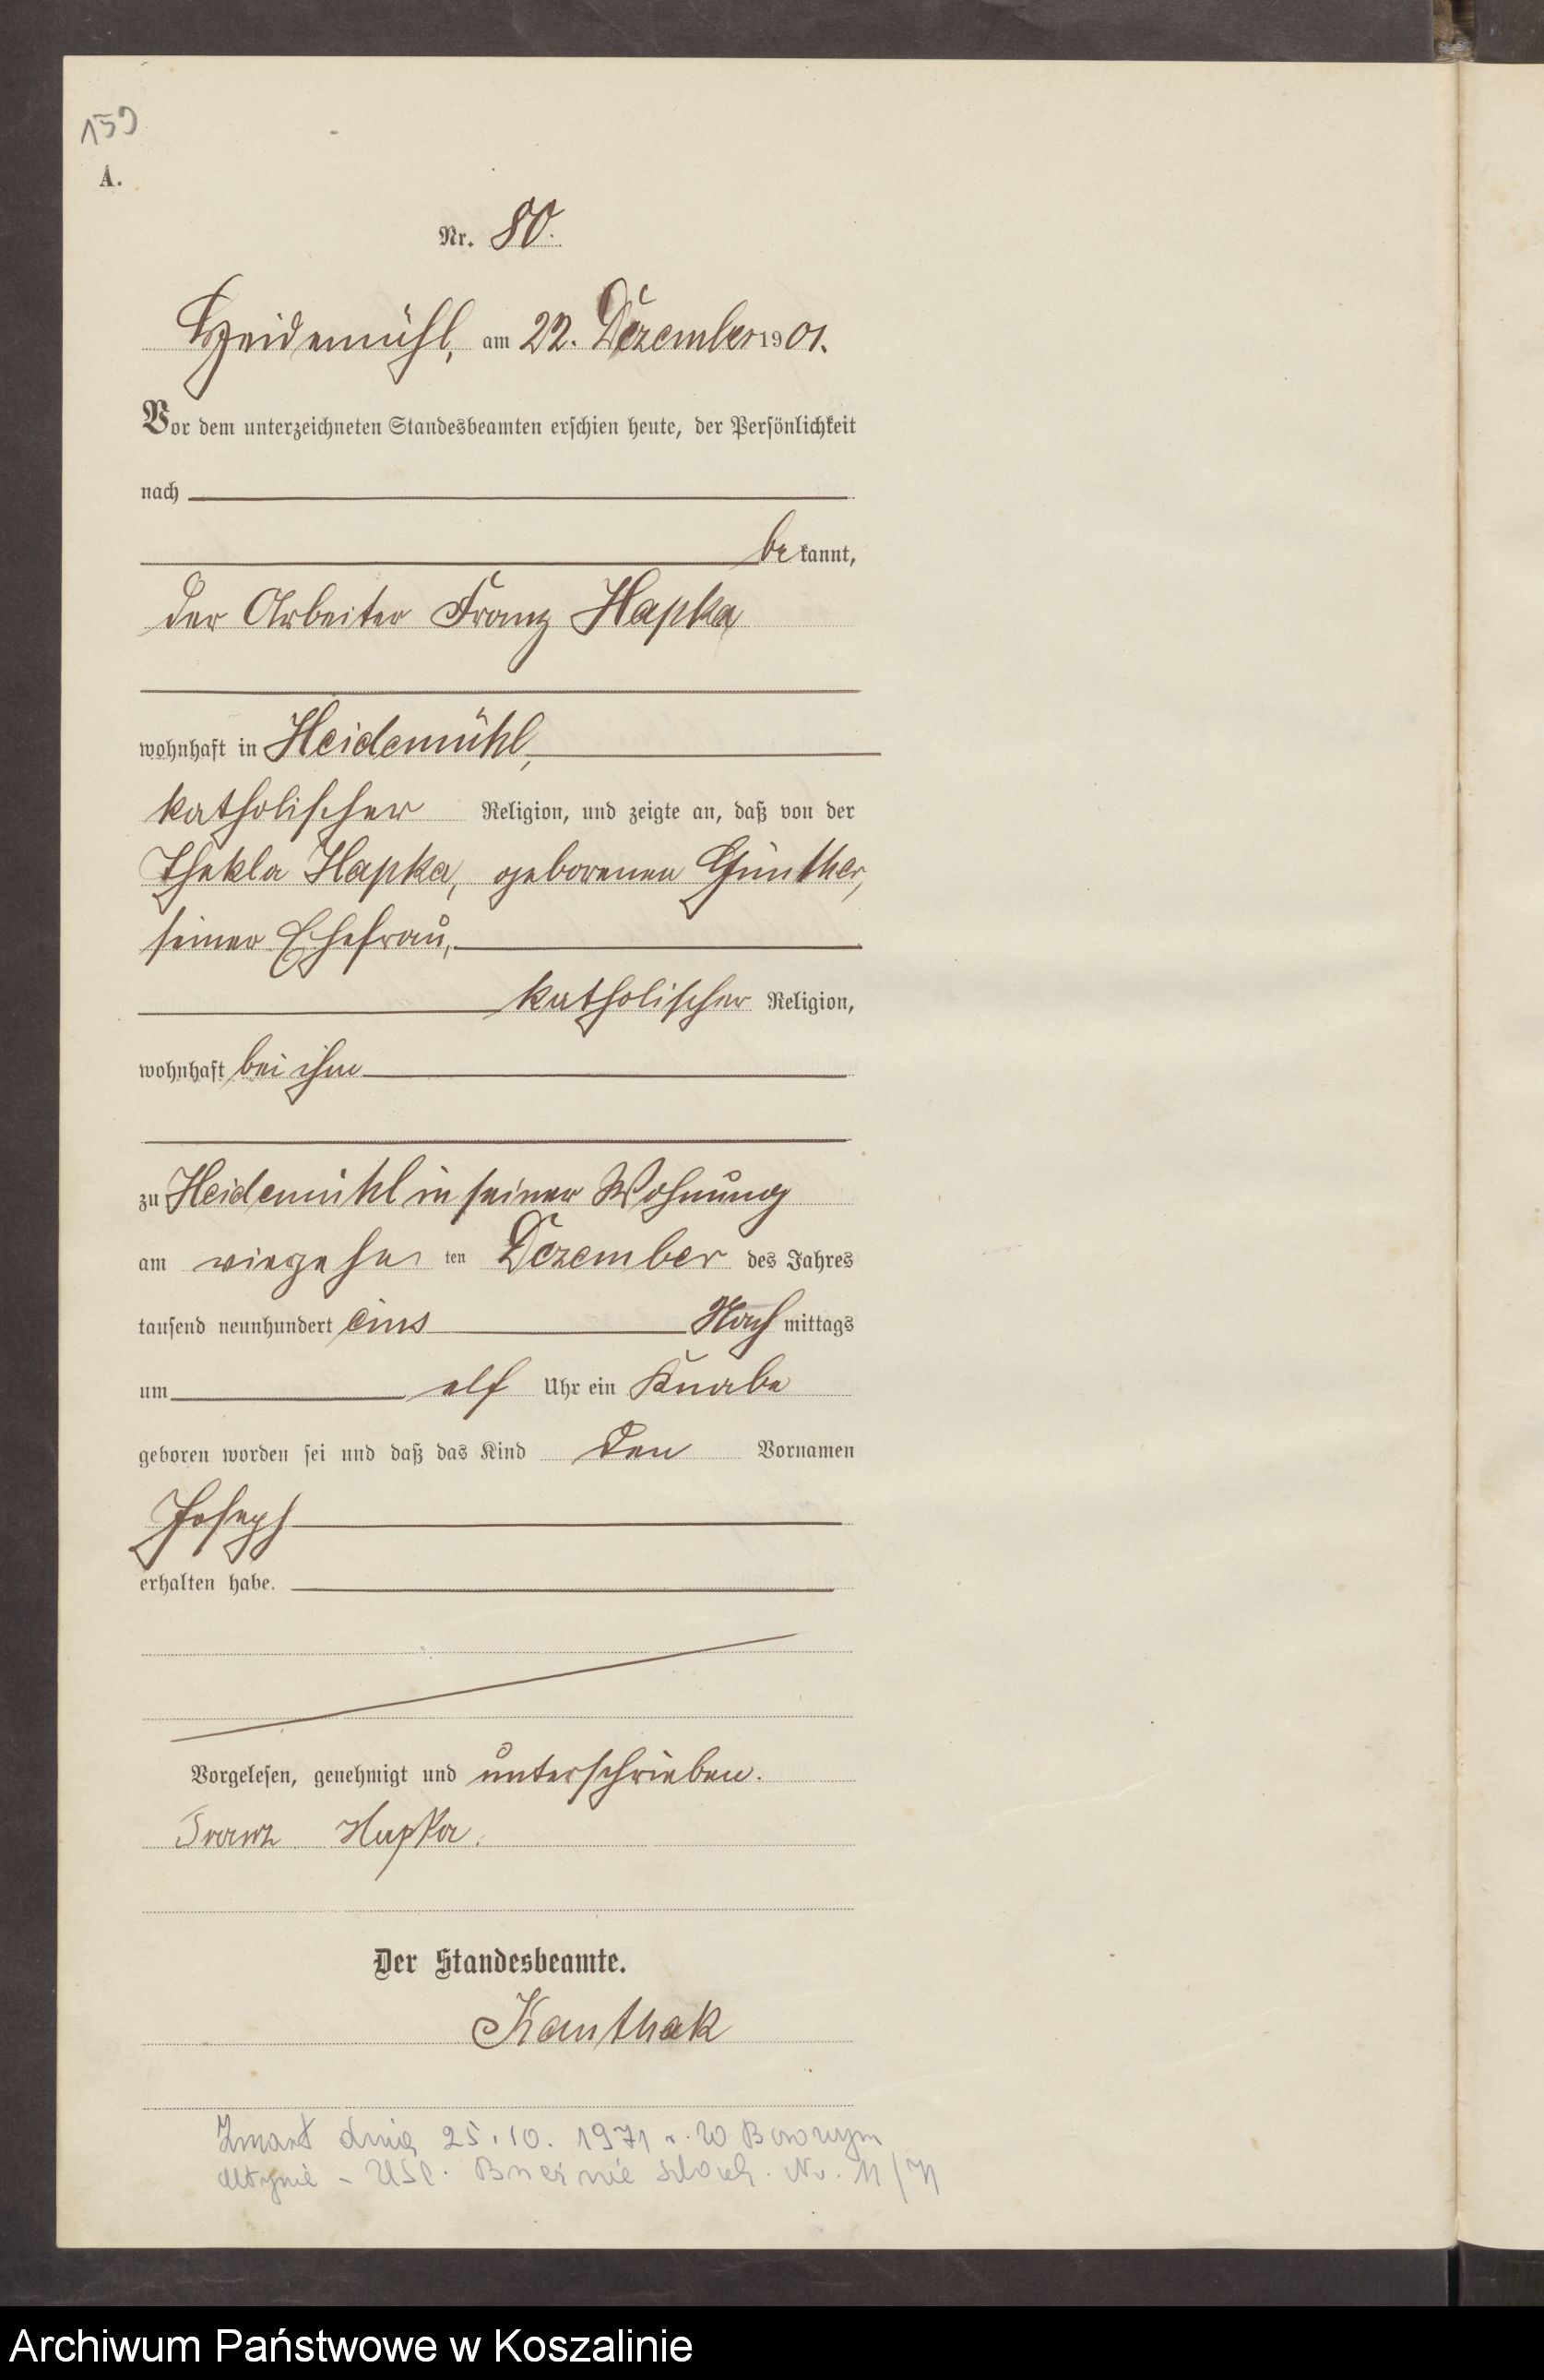 159
A.
Nr. 80.
Heidemühl, am 22. Dezember 1901.
Vor dem unterzeichneten Standesbeamten erschien heute, der Persönlichkeit
nach
bekannt,
der Arbeiter Franz Hapka
wohnhaft in Heidemühl,
katholischer Religion, und zeigte an, daß von der
Thekla Hapka, geborenen Günther,
seiner Ehefrau,
katholischer Religion,
wohnhaft bei ihm
zu Heidemühl in seiner Wohnung
am vierzehnten Dezember des Jahres
tausend neunhundert eins Nachmittags
um elf Uhr ein Knabe
geboren worden sei und daß das Kind den Vornamen
Joseph
erhalten habe.
Vorgelesen, genehmigt und unterschrieben.
Franz Hapka.
Der Standesbeamte.
Kanthak
Zmarł dnia 25.10.1971 r. w Borowym
Młynie - USC. Brzeźnie Szlach. Nr. 11/71
Archiwum Państwowe w Koszalinie